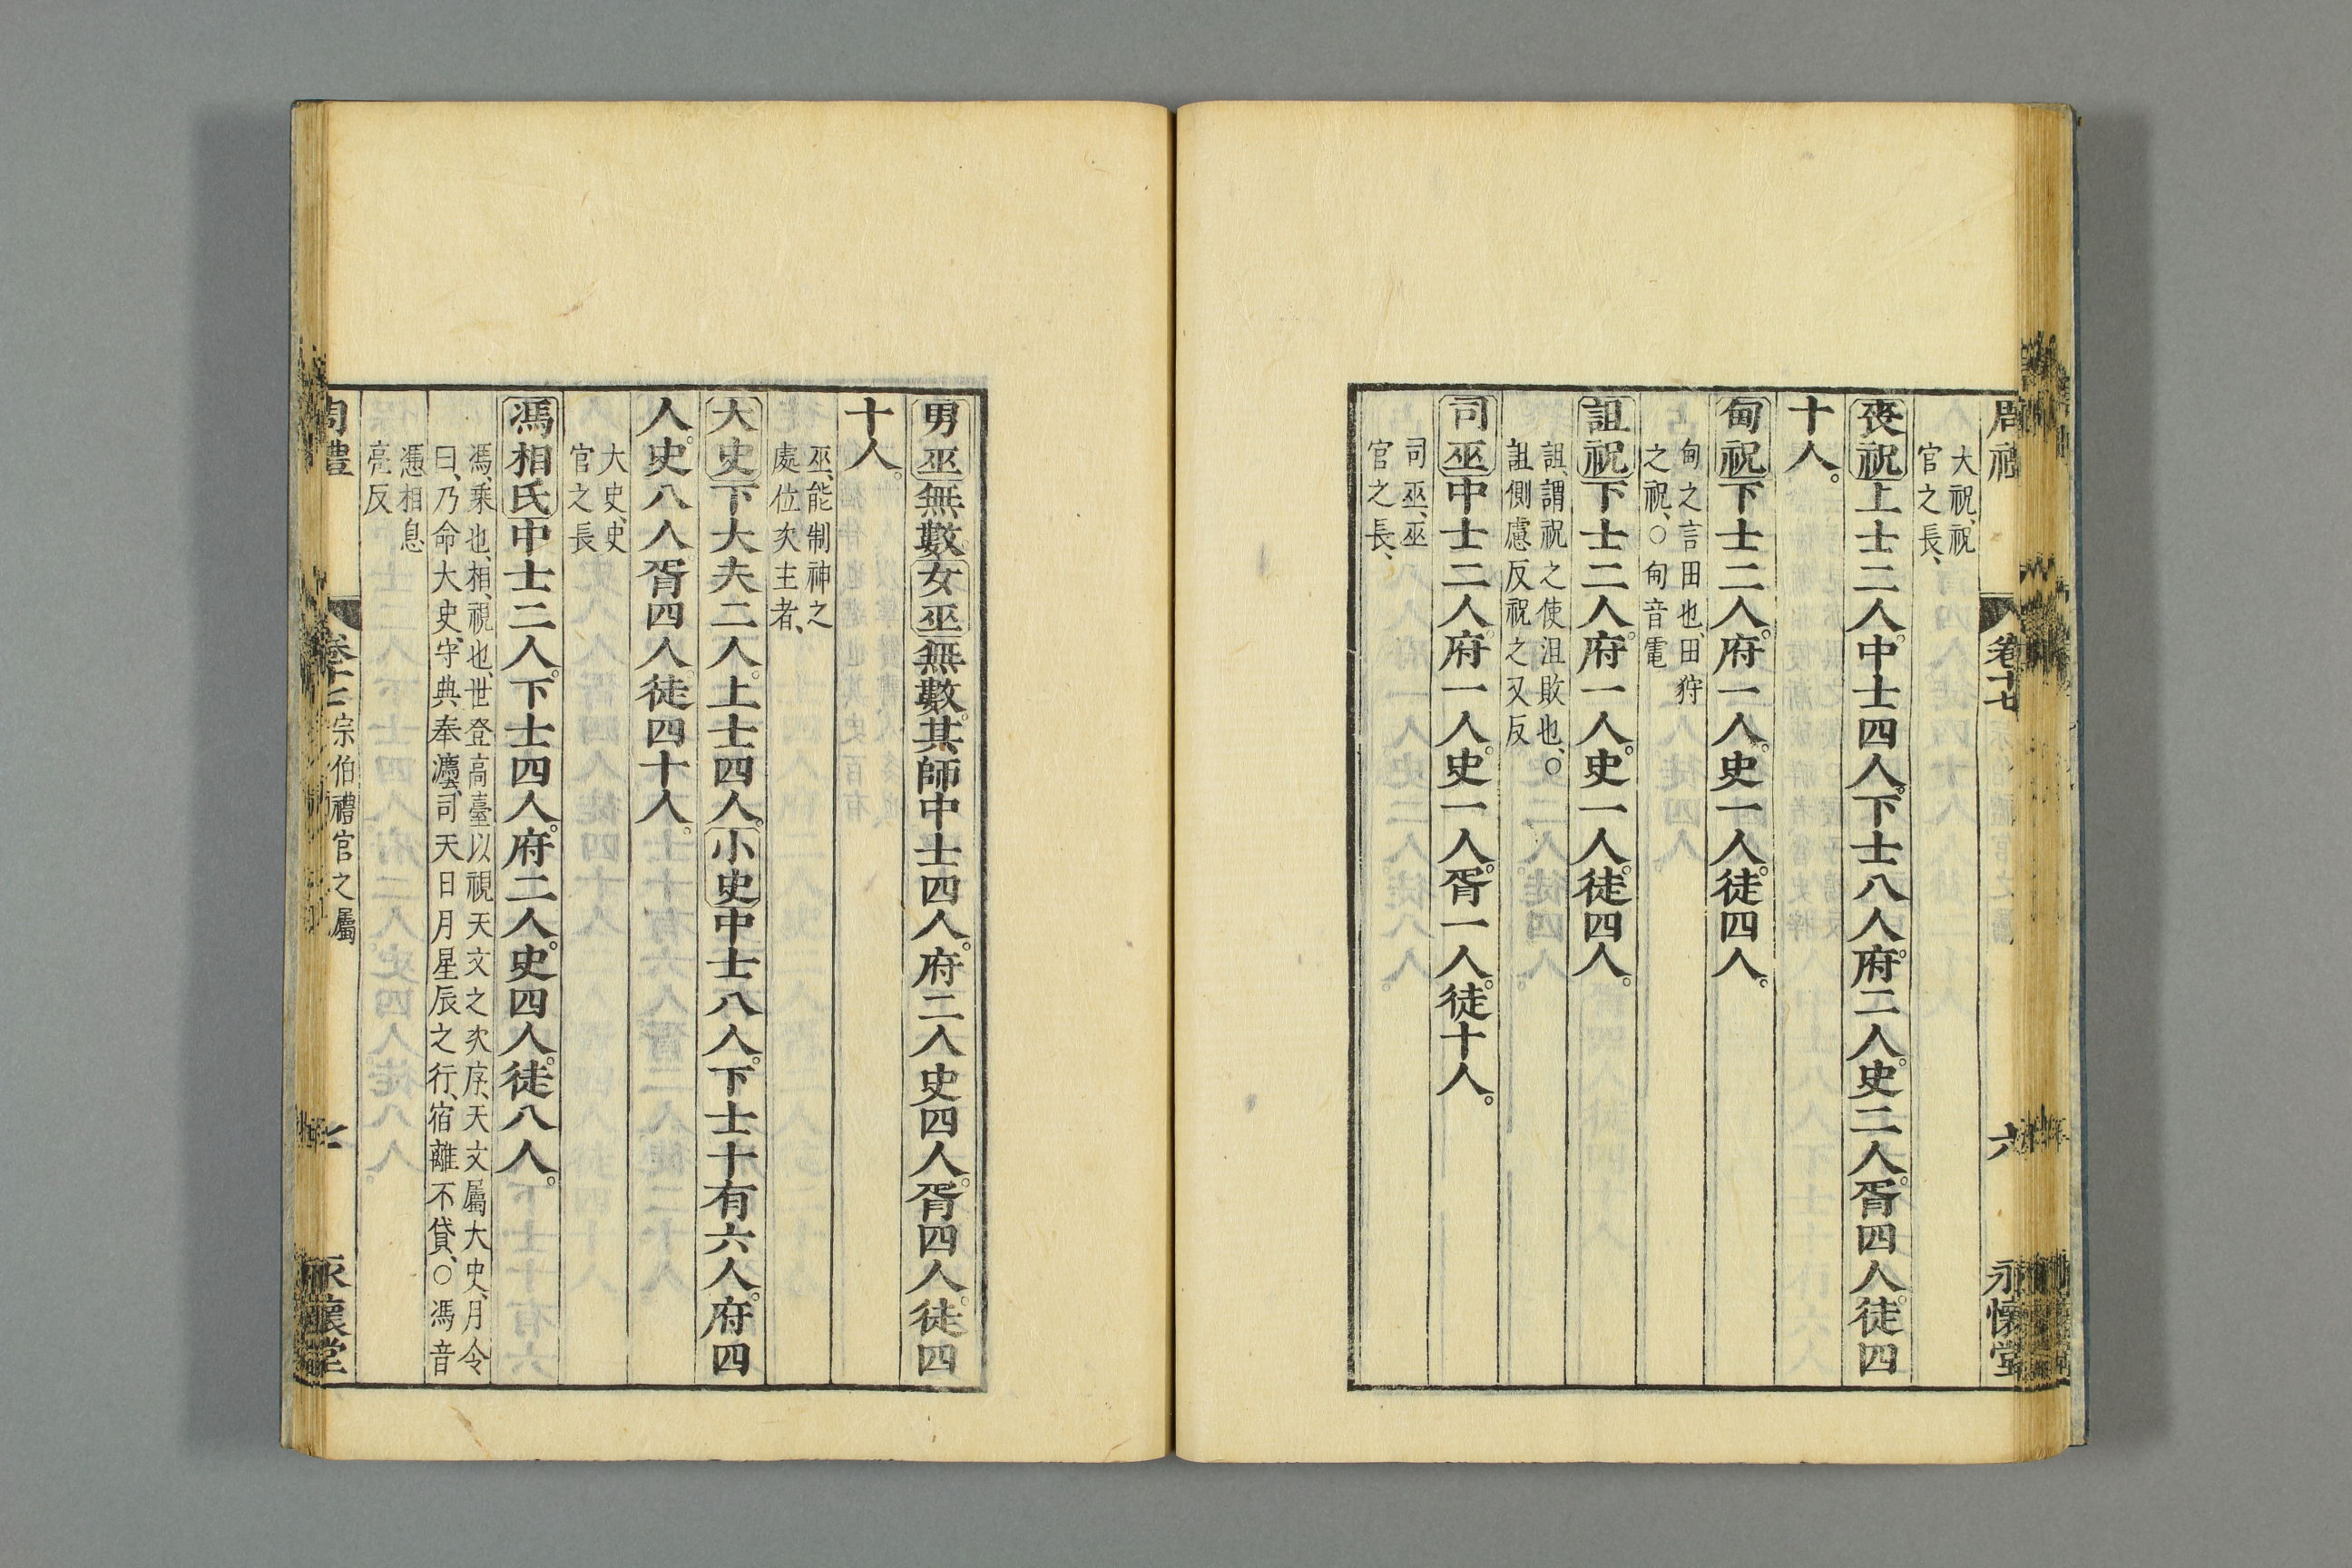 周禮
卷十七
六
永懷堂
大祝、祝
官之長、
喪祝上士二人。中士四人。下士八人。府二人。史二人。胥四人。徒四
十人。
甸祝下士二人。府一人。史一人。徒四人。
甸之言田也、田狩
之祝、○甸音電
詛祝下士二人。府一人。史一人。徒四人。
詛、謂祝之使沮敗也、○
詛側慮反祝之又反
司巫中士二人。府一人。史一人。胥一人。徒十人。
司巫、巫
官之長、
男巫無數。女巫無數。其師中士四人。府二人史四人。胥四人。徒四
十人。
巫、能制神之
處位次主者、
大史下大夫二人。上士四人。小史中士八人。下士十有六人。府四
人。史八人。胥四人。徒四十人。
大史、史
官之長
馮相氏中士二人。下士四人。府二人。史四人。徒八人。
馮、乘也、相、視也、世登高臺以視天文之次序、天文屬大史、月令
曰、乃命大史、守典奉灋、司天日月星辰之行、宿離不貸、○馮音
憑相息
亮反
周禮
宗伯禮官之屬
七
永懷堂